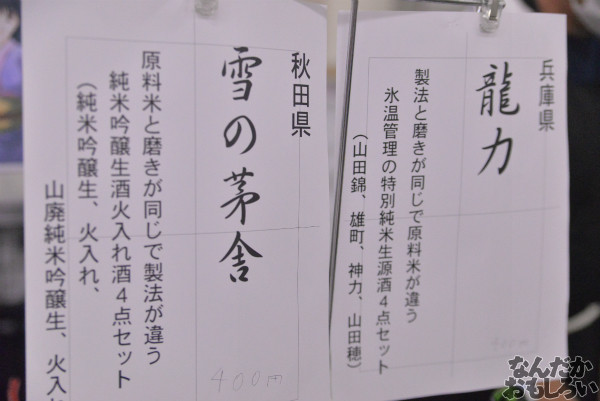 兵庫県
龍力
製法と磨きが同じで原料米が違う
氷温管理の特別純米生源酒4点セット
(山田錦、雄町、神力、山田穂)
400円
秋田県
雪の茅舎
原料米と磨きが同じで製法が違う
純米吟醸生酒火入れ酒4点セット
(純米吟醸生、火入れ、
山廃純米吟醸生、火入れ
400円
なんだか
おもしろい